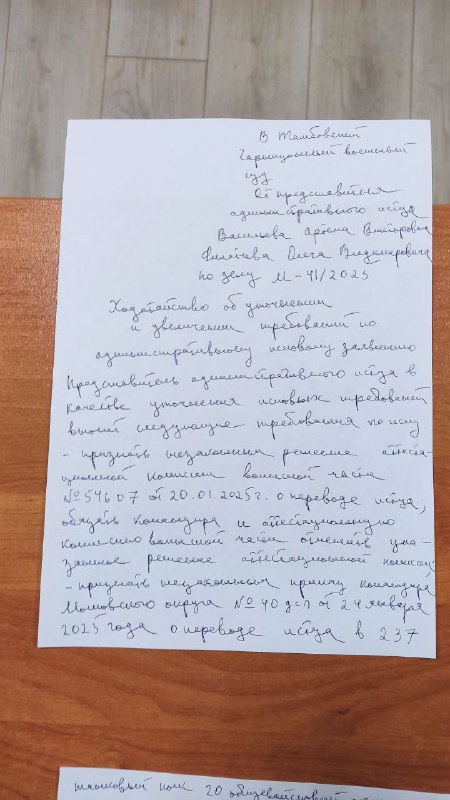 В Тамбовский
гарнизонный военный
суд
От представителя
административного истца
Васильева Артёма Викторовича
Филичева Олега Владимировича
по делу М-41/2025
Ходатайство об уточнении
и увеличении требований по
административному исковому заявлению
Представитель административного истца в
качестве уточнения исковых требований
вносит следующие требования по иску:
- признать незаконным решение аттеста-
ционной комиссии воинской части
№54607 от 20.01.2025 г. о переводе истца;
обязать командира и аттестационную
комиссию воинской части отменить ука-
занное решение аттестационной комиссии;
- признать незаконным приказ командира
Московского округа №40 дсп от 24 января
2025 года о переводе истца в 237
танковый полк 20 общевойсковой